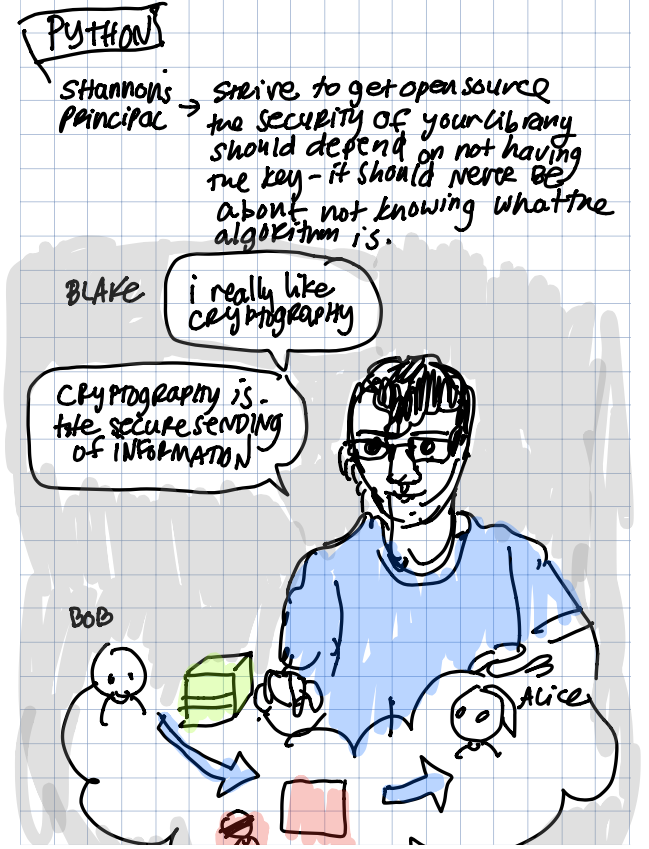 PYTHON
SHANNON'S PRINCIPAL → STRIVE to get open source
the SECURITY OF your Library
should depend on not having
the key - it should NEVER BE
about not knowing what the
algorithm is.
BLAKE
i really like
CRYPTOGRAPHY
CRYPTOGRAPHY is
the SECURE SENDING
of INFORMATION
BOB
ALICE